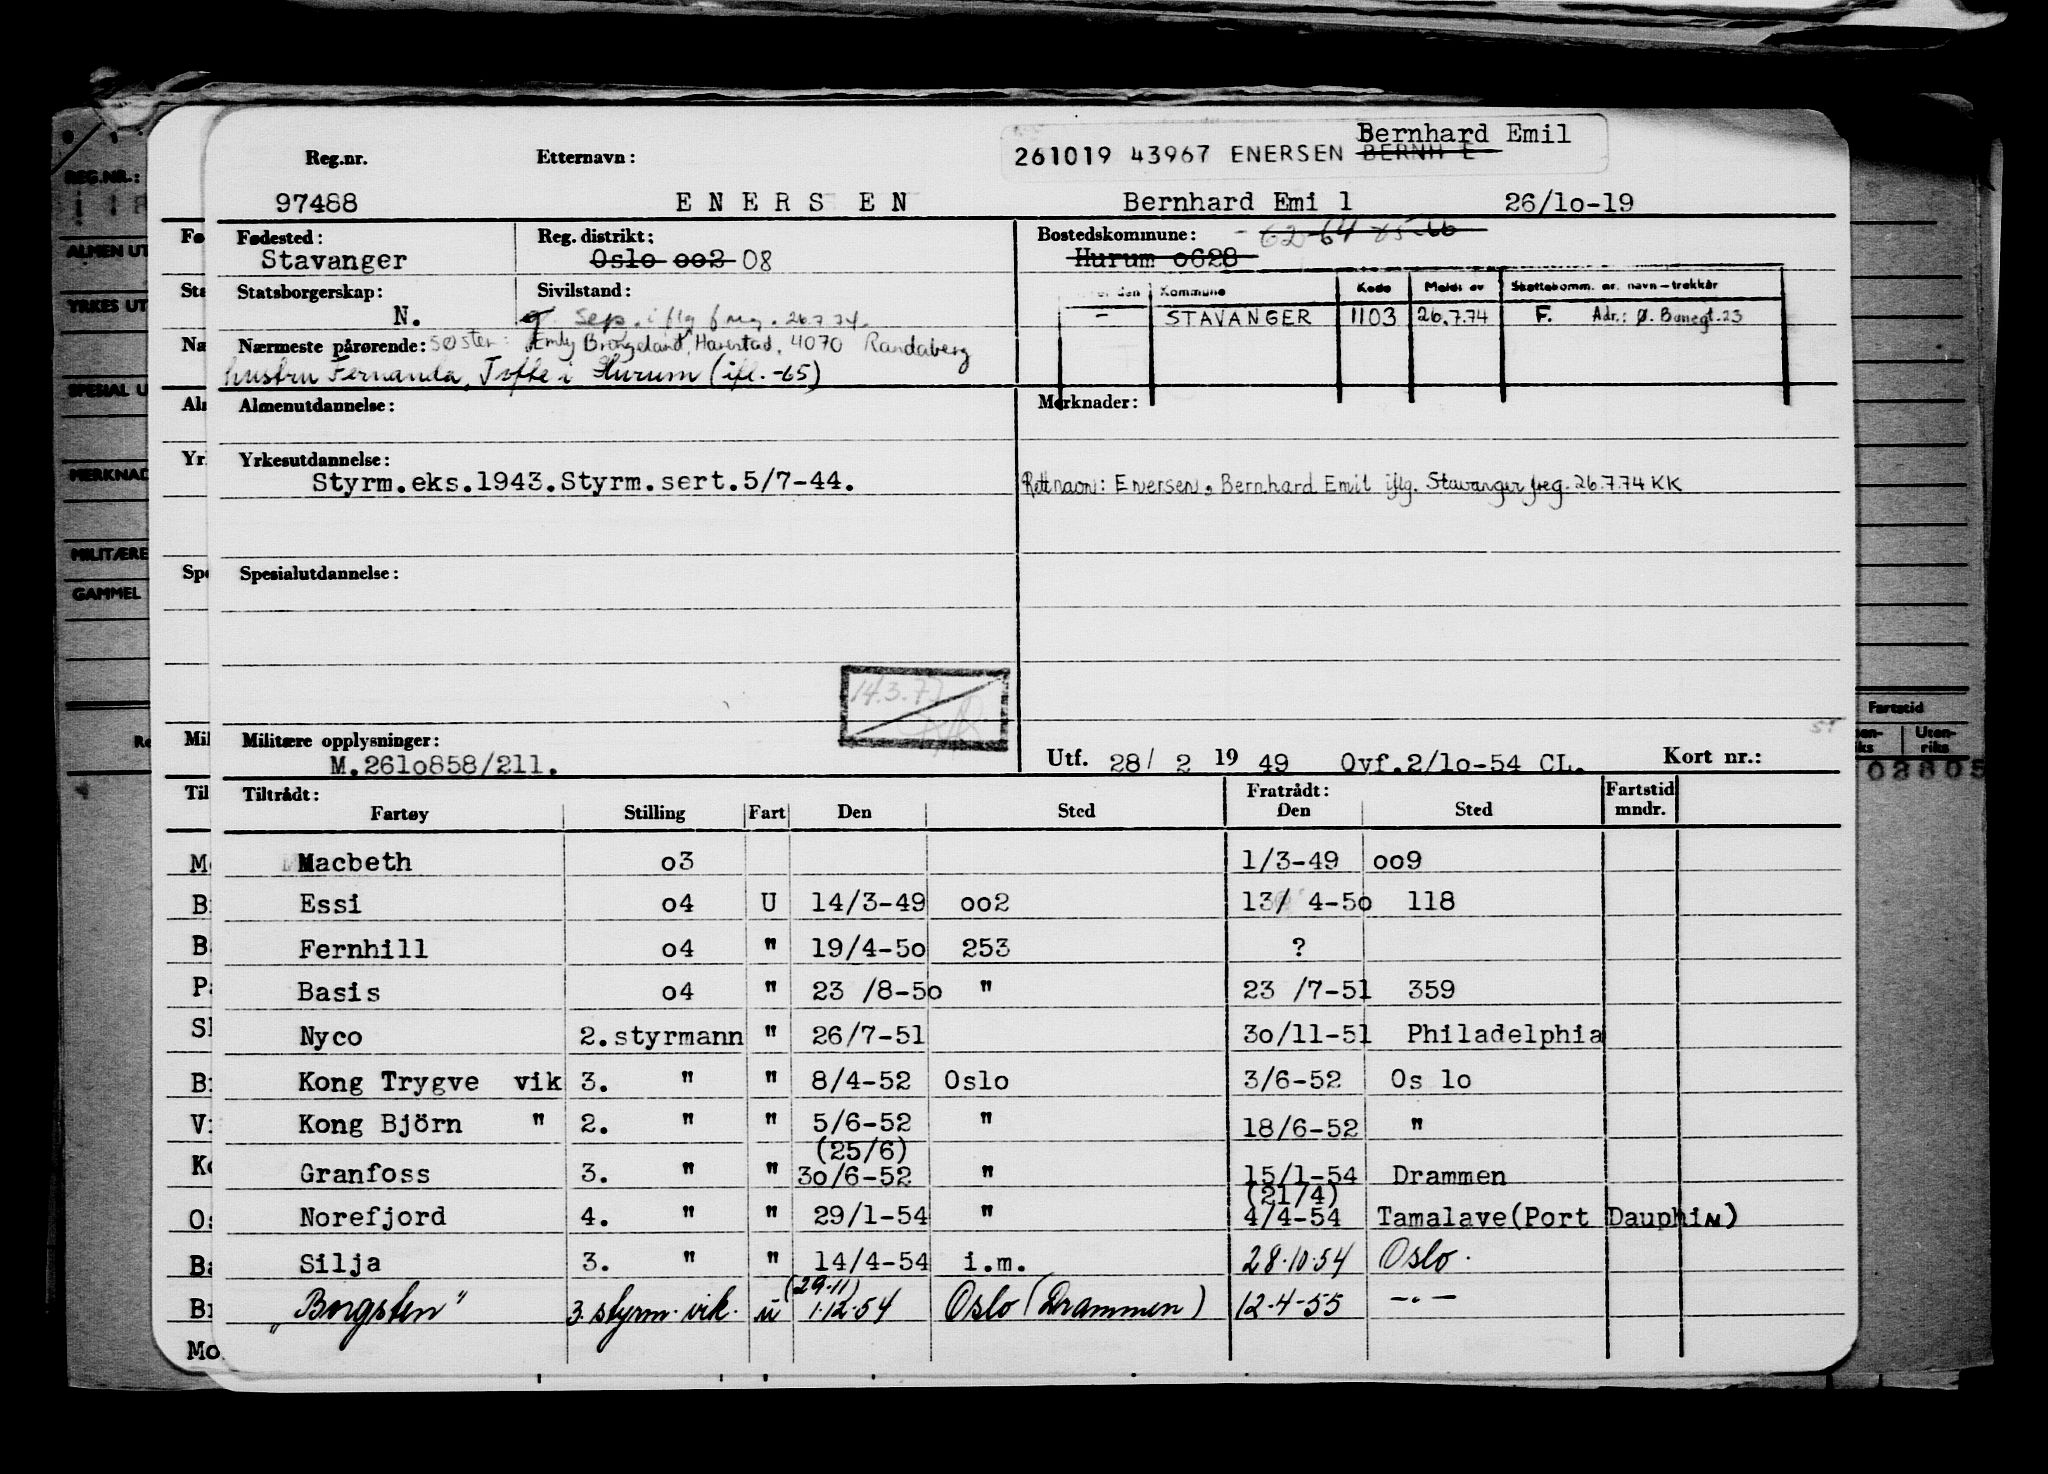 Bernhard Emil
261019 43967 ENERSEN BERNH E
Reg.nr. Etternavn:
97488 E N E R S E N Bernhard Emi l 26/lo-19
Fødested: Reg. distrikt: Bostedskommune: - 62-64 65-66
Stavanger Oslo oo2 08 Hurum o628
Statsborgerskap: Sivilstand: Kommune Kode Meldt av Skattekomm. nr. navn-trekkår
N. g. sep. iflg freg. 26.7.74. - STAVANGER 1103 26.7.74 F. Adr.: Ø. Banegt. 23
Nærmeste pårørende: søster: Emly Brogeland, Harestad, 4070 Randaberg
hustru Fernanda, Tofte i Hurum (ifl. -65)
Almenutdannelse: Merknader:
Yrkesutdannelse:
Styrm.eks.1943.Styrm.sert.5/7-44. Rett navn: Enersen, Bernhard Emil iflg. Stavanger freg. 26.7.74 KK
Spesialutdannelse:
14.3.77
Militære opplysninger:
M.261o858/211. Utf. 28/ 2 19 49 Ovf.2/lo-54 CL. Kort nr.:
Tiltrådt: Fratrådt: Fartstid
Fartøy Stilling Fart Den Sted Den Sted mndr.
Macbeth o3 1/3-49 oo9
Essi o4 U 14/3-49 oo2 13/ 4-5o 118
Fernhill o4 " 19/4-5o 253 ?
Basis o4 " 23 /8-5o " 23 /7-51 359
Nyco 2.styrmann " 26/7-51 3o/11-51 Philadelphia
Kong Trygve vik 3. " " 8/4-52 Oslo 3/6-52 Os lo
Kong Björn " 2. " " 5/6-52 " 18/6-52 "
(25/6)
Granfoss 3. " " 3o/6-52 " 15/1-54 Drammen
(21/4)
Norefjord 4. " " 29/1-54 " 4/4-54 Tamalave(Port DauphiN)
Silja 3. " " 14/4-54 i.m. 28.10.54 Oslo.
(29.11)
"Borgsten" 3. styrm. vik. u 1.12.54 Oslo (Drammen) 12.4-55 -.-
REG.NR.:
ALMEN UT
YRKES UT
SPESIAL U
MERKNAD
MILITÆRE
GAMMEL
Fartstid
Uten-
riks
02805